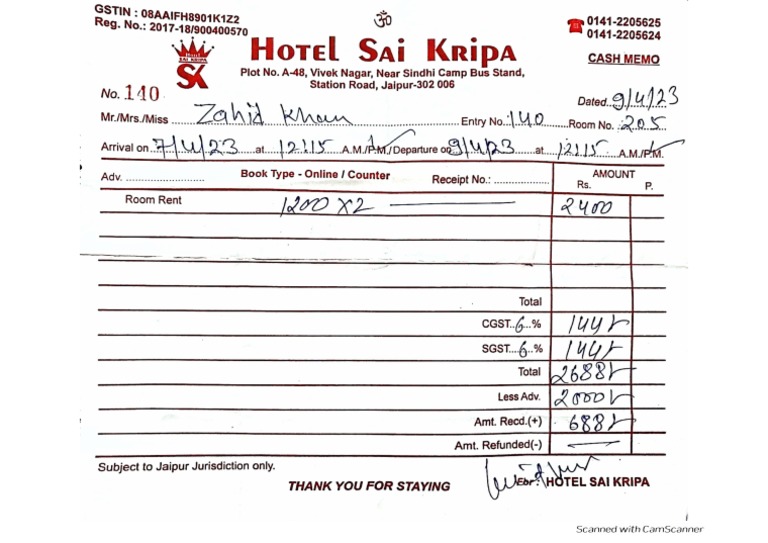 GSTIN : 08AAIFH8901K1Z2
Reg. No.: 2017-18/900400570
ॐ
0141-2205625
0141-2205624
HOTEL SAI KRIPA
SK
HOTEL SAI KRIPA
CASH MEMO
Plot No. A-48, Vivek Nagar, Near Sindhi Camp Bus Stand,
Station Road, Jaipur-302 006
No. 140 Dated 9/4/23
Mr./Mrs./Miss Zahid Khan Entry No. 140 Room No. 205
Arrival on 7/4/23 at 12:15 A.M./P.M./Departure on 9/4/23 at 12:15 A.M./P.M.
Adv. Book Type - Online / Counter Receipt No.: AMOUNT
Rs. P.
Room Rent 1200 X 2 2400
Total
CGST 6 % 144/-
SGST 6 % 144/-
Total 2688/-
Less Adv. 2000/-
Amt. Recd.(+) 688/-
Amt. Refunded(-) —
Subject to Jaipur Jurisdiction only.
THANK YOU FOR STAYING
For : HOTEL SAI KRIPA
Scanned with CamScanner